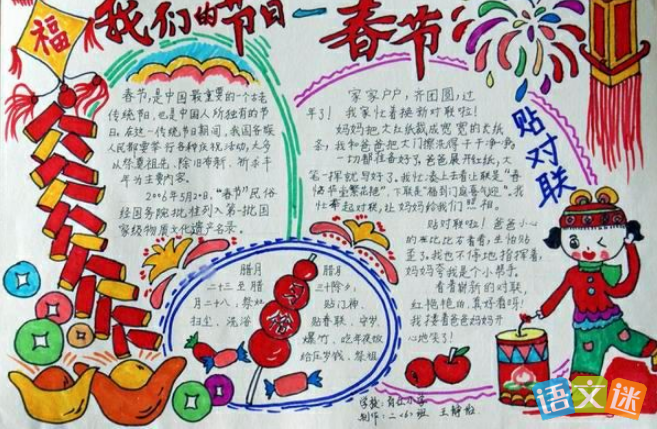 福
我们的节日一春节
春节,是中国最重要的一个古老
传统节日,也是中国人所独有的节
日。在这一传统节日期间,我国各族
人民都要举行各种庆祝活动,大多
以祭祖先、除旧布新、祈求丰
年为主要内容。
2006年5月20日,“春节”民俗
经国务院批准列入第一批国
家级物质文化遗产名录。
家家户户,齐团圆,过
年了!我家忙着换新对联啦!
妈妈把大红纸裁成宽宽的大纸
我和爸爸把大门擦洗得干干净净,
一切都准备好了,爸爸展开红纸,大
笔一挥就写好了。我忙凑上去看上联是“春
下联是“福到门庭喜气迎”。我
忙拿起对联,让妈妈给我们照相。
贴对联啦!爸爸小心
比比右看看,生怕贴
歪了。我也不停地指挥着,
妈妈夸我是个小帮手。
看着崭新的对联,
红艳艳的,真好看呀!
我搂着爸爸妈妈开
心地笑了!
贴对联
腊月
二十三至腊
月二十八:祭灶
扫尘、洗浴
腊月
三十除夕:
贴门神、
贴春联、守岁、
爆竹、吃年夜饭
给压岁钱、祭祖
学校:
制作:二
语文迷